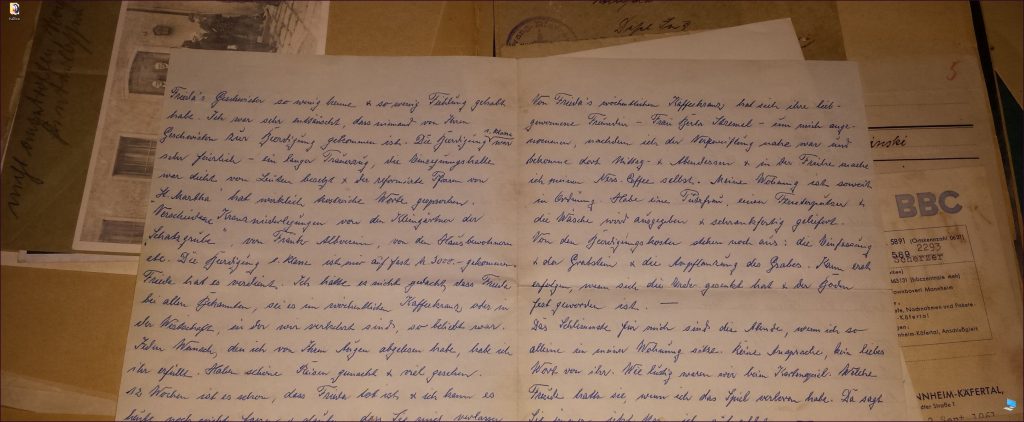 Frieda's Geschwister so wenig kenne & so wenig Fühlung gehabt
habe. Ich war sehr enttäuscht, dass niemand von Ihren
Geschwistern zur Beerdigung gekommen ist. Die Beerdigung 1. Klasse war
sehr feierlich - ein langer Trauerzug, die Einsegnungshalle
war dicht von Leuten besetzt & der reformierte Pfarrer von
"St. Martha" hat wirklich Worte gesprochen.
Verschiedene Kranzniederlegungen von den Kleingärtner der
"Schatzgrube" vom Frank. Albverein, von den Hausbewohnern
etc. Die Beerdigung 1. Klasse ist mir auf fast 3000.- gekommen.
Frieda hat es verdient. Ich hätte es nicht gedacht, dass Frieda
bei allen Bekannten, sei es im wöchentlichen Kaffeekranz oder in
der Wirtschaft, in der wir verkehrt sind, so beliebt war.
Jeden Wunsch, den ich von Ihren Augen abgelesen habe, habe ich
ihr erfüllt. Haben schöne Reisen gemacht & viel gesehen.
12 Wochen ist es schon, dass Frieda tot ist & ich kann es
heute noch nicht dass Sie mich verlassen
Von Frieda's wöchentlichen Kaffeekranz hat sich ihre lieb-
gewonnene Freundin - Frau Berta - um mich ange-
nommen, nachdem ich der Verzweiflung nahe war und
bekomme dort Mittag- & Abendessen & in der Frühe mache
ich meinen Nes-Caffee selbst. Meine Wohnung ist soweit
in Ordnung. Habe eine Putzfrau, einen Fensterputzer &
die Wäsche wird ausgegeben & schrankfertig geliefert.
Von den Beerdigungskosten stehen noch aus: die Einfassung
& der Grabstein & die Anpflanzung des Grabes. Kann erst
erfolgen, wenn sich die Erde gesenkt hat & der Boden
fest geworden ist. —
Das Schlimmste für mich sind die Abende, wenn ich so
alleine in meiner Wohnung sitze. Keine Ansprache, kein liebes
Wort von ihr. Wie lustig waren wir beim Kartenspiel. Welche
Freude hatte sie, wenn ich das Spiel verloren habe. Da sagt
5
inski
BBC
5891
2293
569
Scherzer
MS131
nnboveri Mannheim
te, Nachnahmen und Pakete
-Käfertal
nheim-Käfertal, Anschlußgleis
NNHEIM-KÄFERTAL,
dter Straße 1